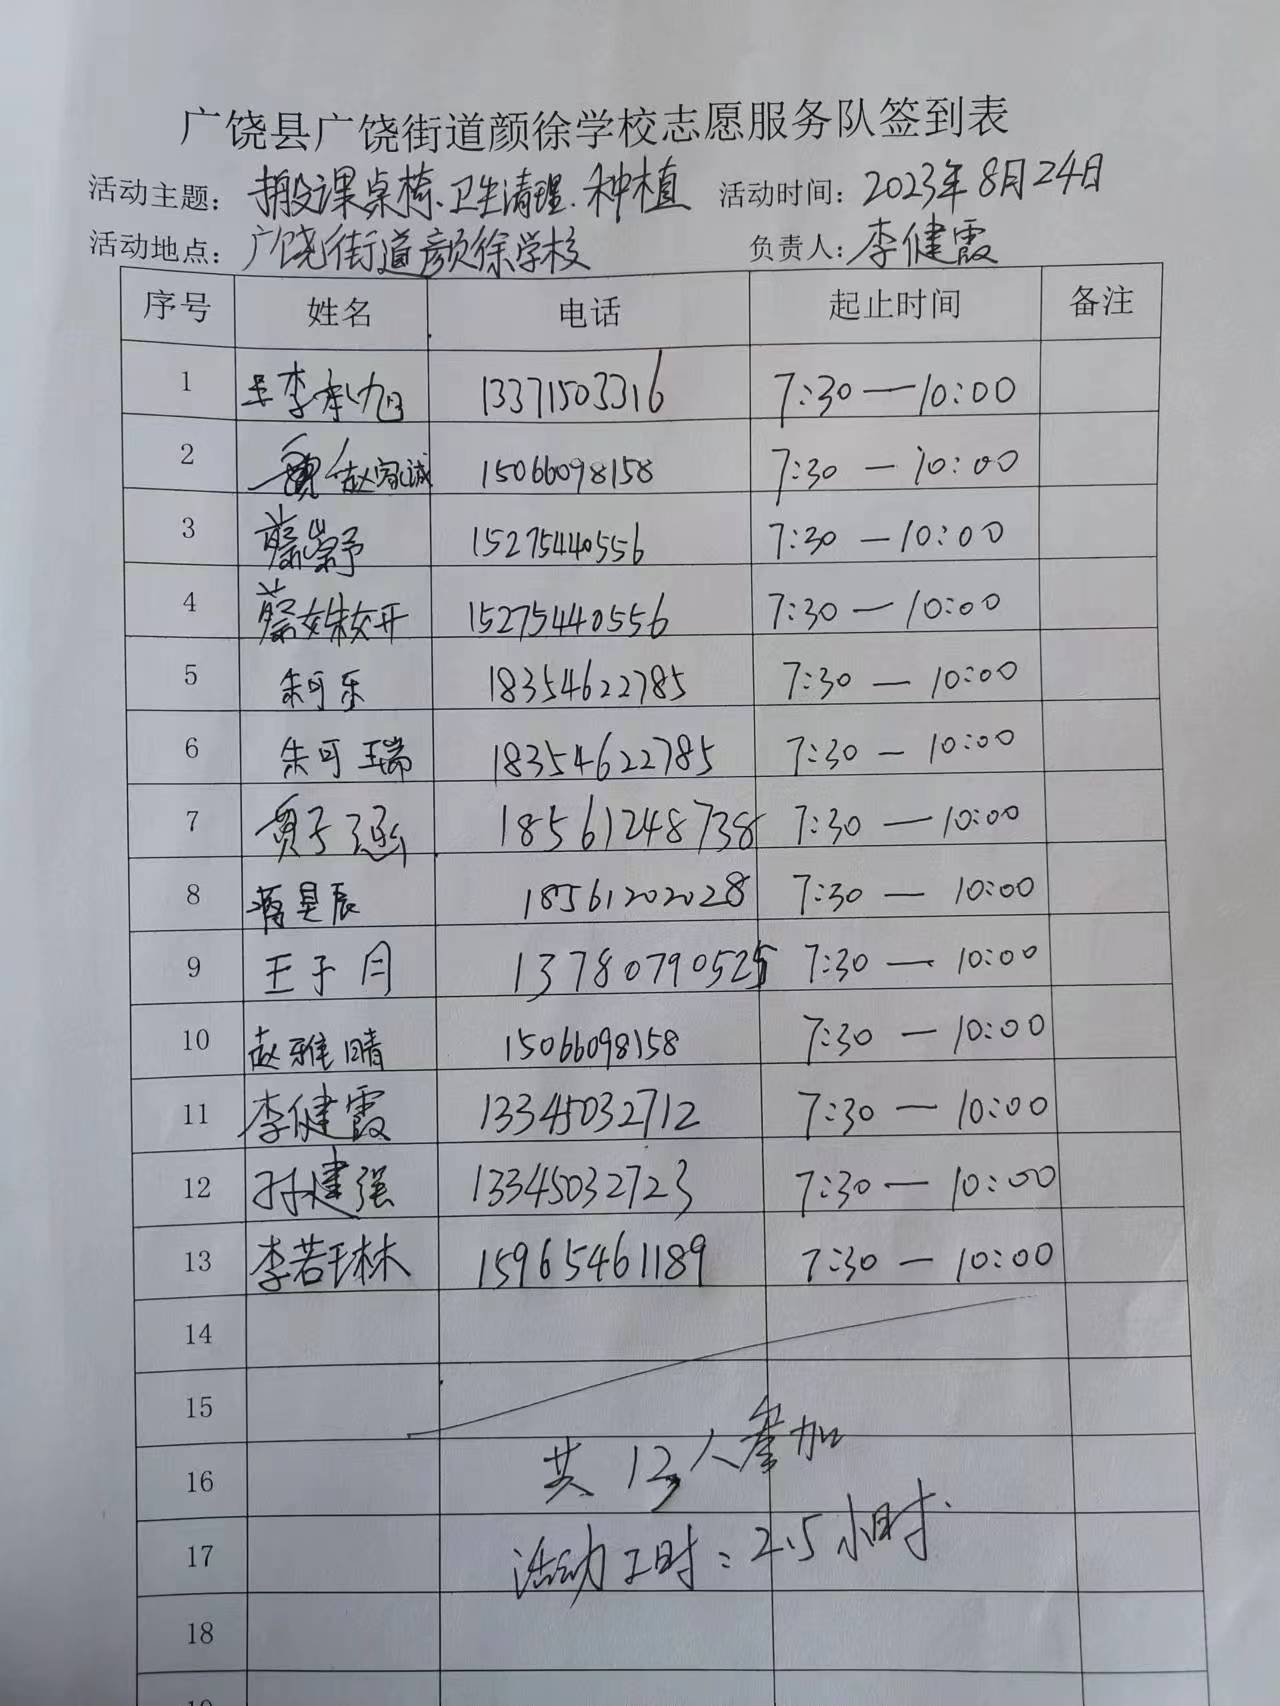 广饶县广饶街道颜徐学校志愿服务队签到表
活动主题：搬课桌椅、卫生清理、种植 活动时间：2023年8月24日
活动地点：广饶街道颜徐学校 负责人：李健霞
序号 姓名 电话 起止时间 备注
1 李承旭 13371503316 7:30—10:00
2 赵家诚 15066098158 7:30—10:00
3 蔡紫予 15275440556 7:30—10:00
4 蔡姝开 15275440556 7:30—10:00
5 朱可乐 18354622785 7:30—10:00
6 朱可瑞 18354622785 7:30—10:00
7 贾子涵 18561248738 7:30—10:00
8 蒋昊辰 18561202028 7:30—10:00
9 王子月 13780790525 7:30—10:00
10 赵雅晴 15066098158 7:30—10:00
11 李健霞 13345032712 7:30—10:00
12 孙建强 13345032723 7:30—10:00
13 李若琳 15965461189 7:30—10:00
14
15
16 共13人参加
17 活动工时：2.5小时.
18